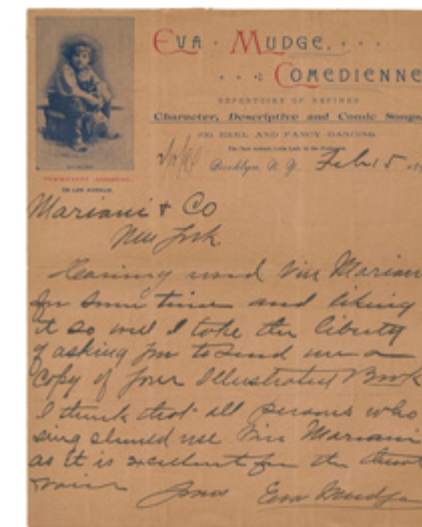 EVA MUDGE,
COMEDIENNE
REPERTOIRE OF REFINED
Character, Descriptive and Comic Songs,
HEEL AND FANCY DANCING
PERMANENT ADDRESS,
Brooklyn, N. Y. Feb 15
Mariani & Co
New York
Having used Vin Mariani
for some time and liking
it so well I take the liberty
of asking you to send me a
Copy of your Illustrated Book
I think that all persons who
sing should use Vin Mariani
as it is excellent for the throat
voice Yours Eva Mudge